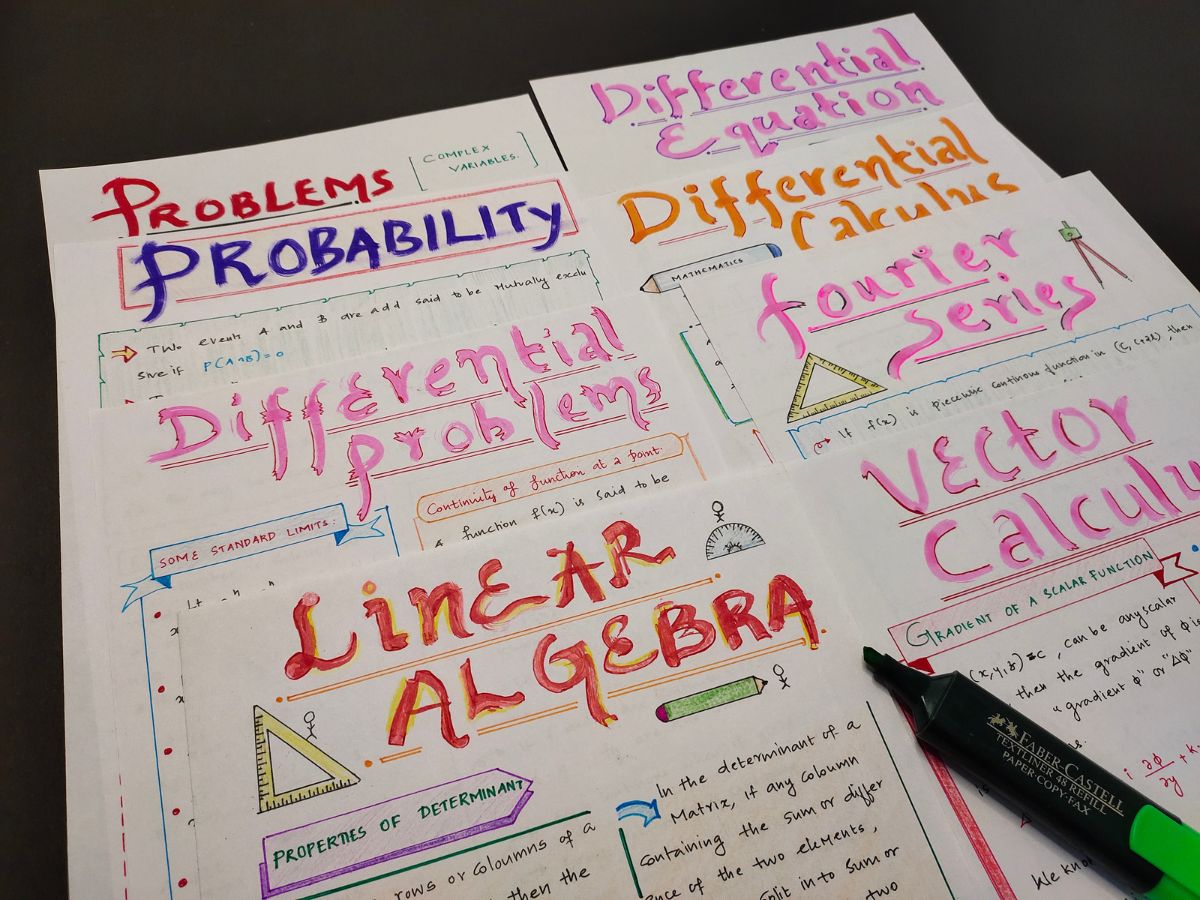 PROBLEMS
COMPLEX
VARIABLES.
PROBABILITY
Two events A and B are add said to be Mutually exclu
sive if P(A∩B)=0
Differential
Equation
Differential
Calculus
MATHEMATICS
Fourier
Series
If f(x) is piecewise continous function in (c, c+2l), then
Differential
problems
Continuity of function at a point.
A function f(x) is said to be
SOME STANDARD LIMITS:
Lt
Vector
Calculu
GRADIENT OF A SCALAR FUNCTION
(x,y,z)=c, can be any scalar
then the gradient of ϕ is
"gradient ϕ" or "Δϕ"
i ∂ϕ/∂y + k
We kno
LINEAR
ALGEBRA
PROPERTIES OF DETERMINANT
rows or Coloumns of a
then the
In the determinant of a
Matrix, if any coloumn
containing the sum or differ
ence of the two elements,
split in to sum or
two
FABER-CASTELL
TEXTLINER 48 REFILL
PAPER·COPY·FAX